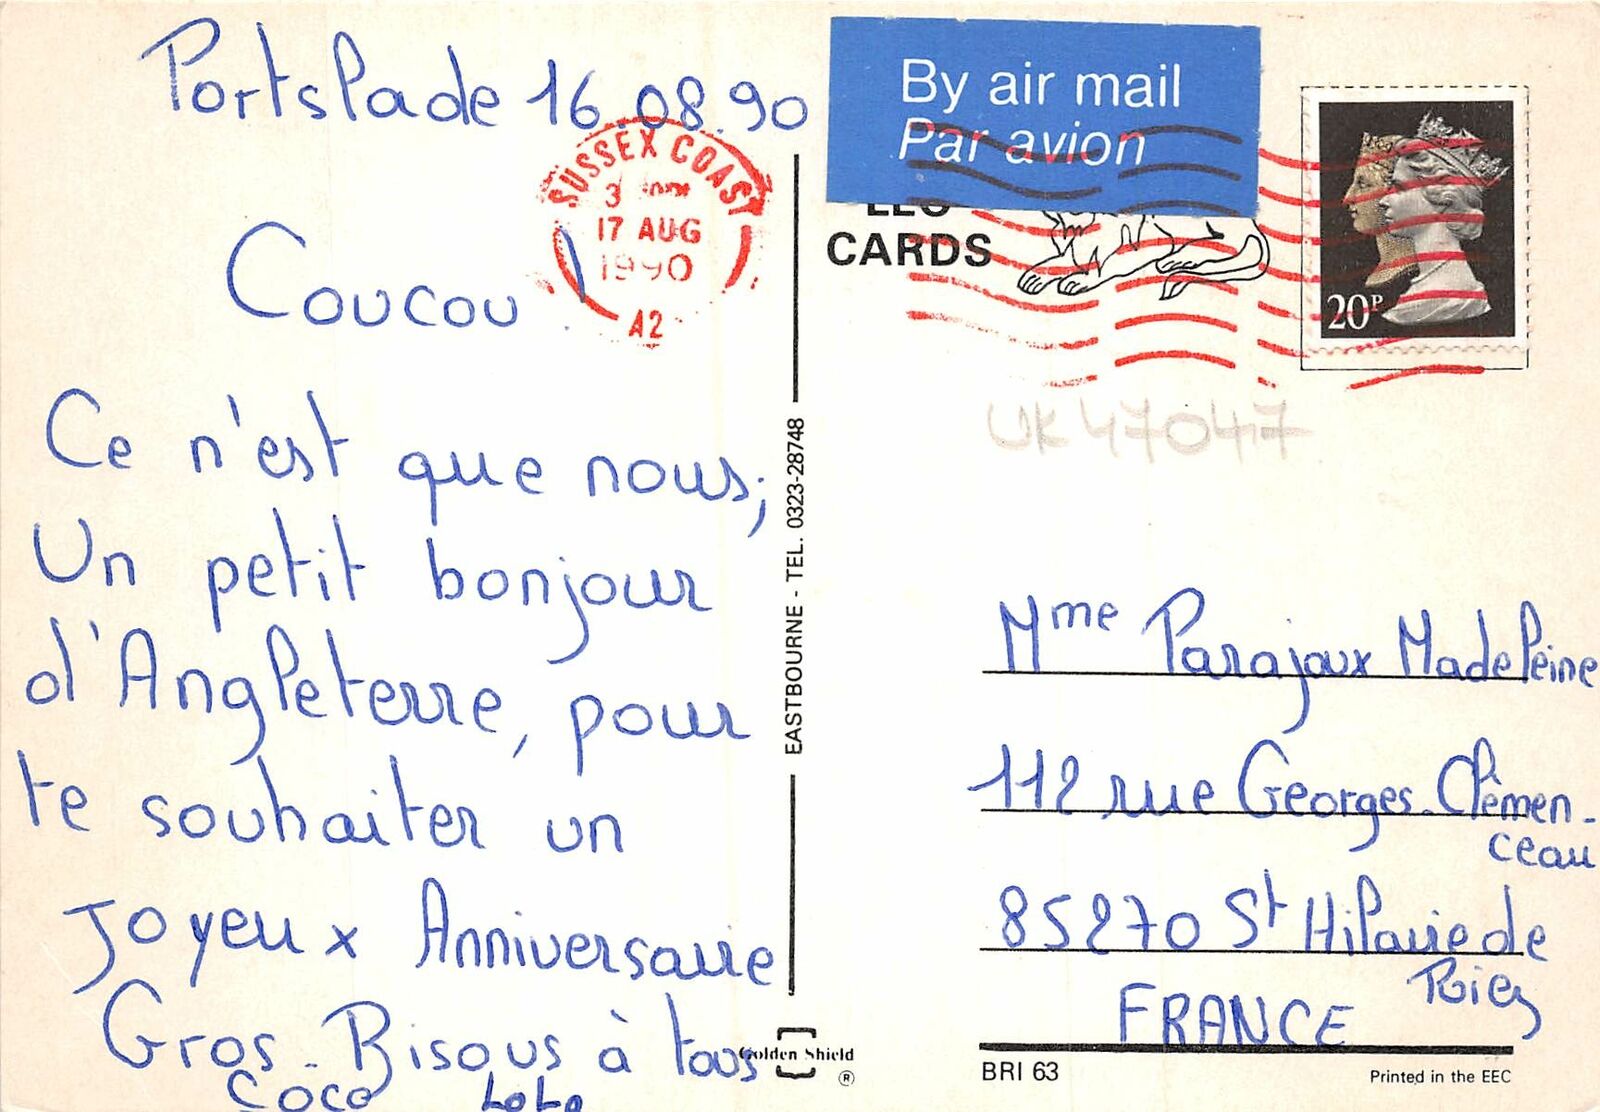 Portslade 16.08.90
Coucou !
Ce n'est que nous;
Un petit bonjour
d'Angleterre, pour
te souhaiter un
Joyeux Anniversaire
Gros. Bisous à tous
Coco Lolo
SUSSEX COAST
17 AUG
1990
A2
EASTBOURNE - TEL. 0323-28748
Golden Shield
®
By air mail
Par avion
CARDS
20P
UK47047
Mme Parajoux Madeleine
112 rue Georges.Clémen-
ceau
85270 St Hilaire de
Riez
FRANCE
BRI 63
Printed in the EEC